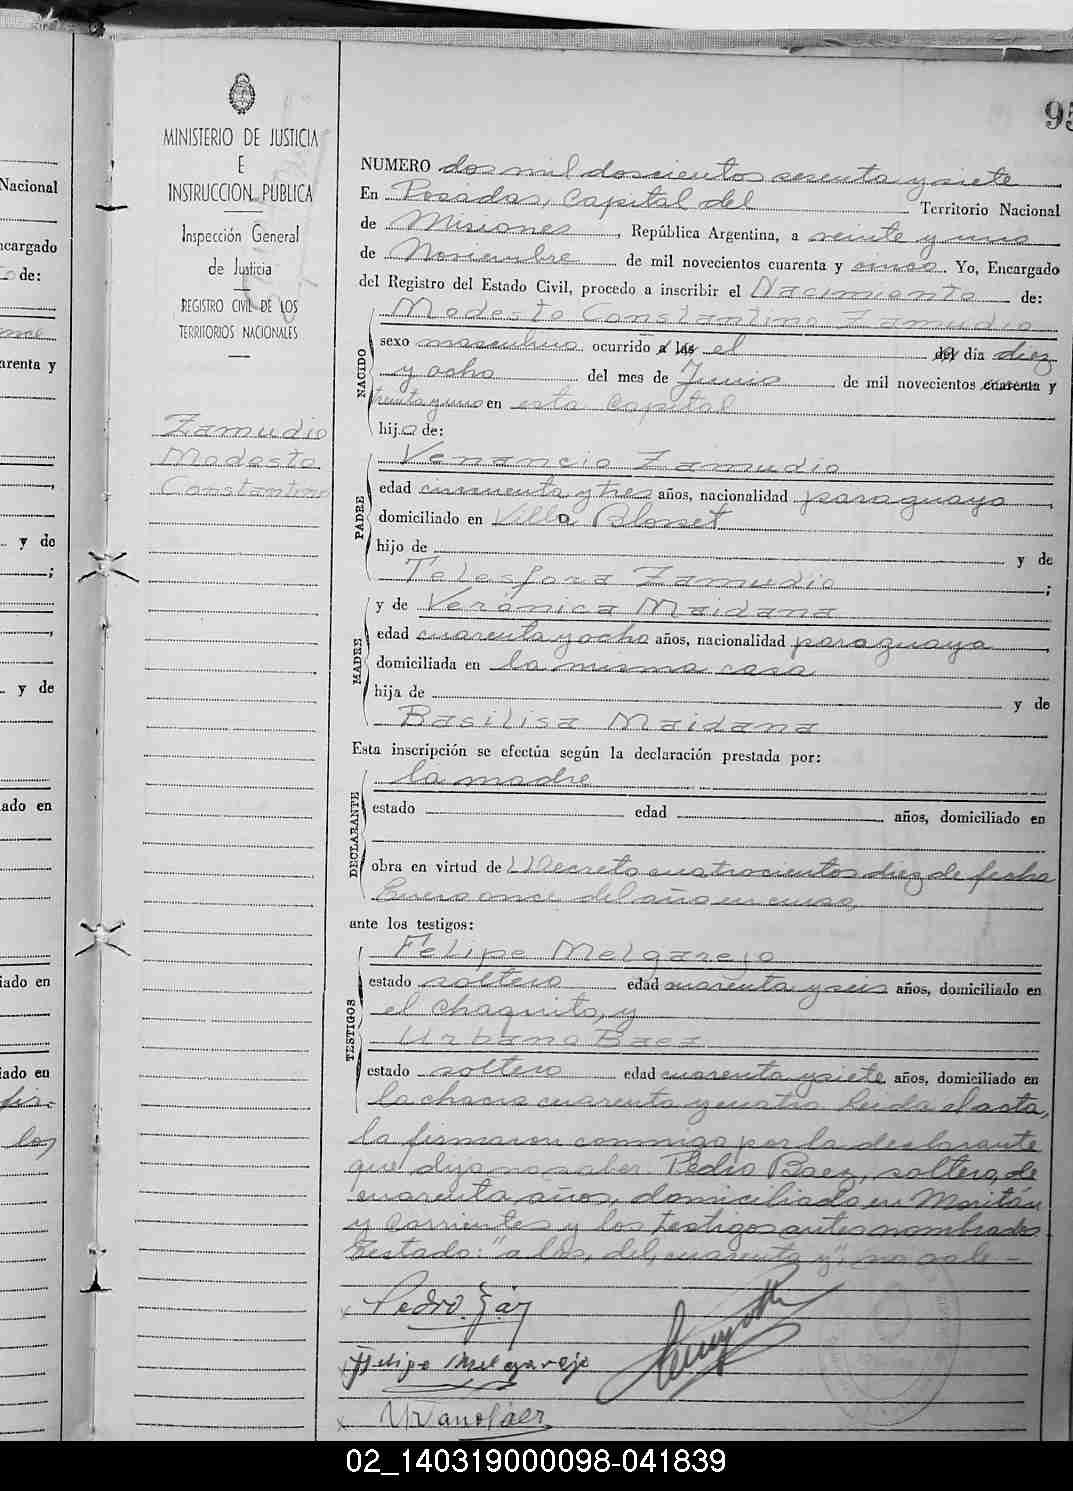 95
MINISTERIO DE JUSTICIA
E
INSTRUCCION PUBLICA
Inspección General
de Justicia
REGISTRO CIVIL DE LOS
TERRITORIOS NACIONALES
Zamudio
Modesto
Constantino
NUMERO dos mil doscientos sesenta y siete
En Posadas, Capital del Territorio Nacional
de Misiones, República Argentina, a veinte y uno
de Noviembre de mil novecientos cuarenta y cinco. Yo, Encargado
del Registro del Estado Civil, procedo a inscribir el Nacimiento de:
Modesto Constantino Zamudio
NACIDO
sexo masculino ocurrido a las el del día diez
y ocho del mes de Junio de mil novecientos cuarenta y
treinta y uno en esta Capital
hijo de:
PADRE
Venancio Zamudio
edad cincuenta y tres años, nacionalidad paraguaya,
domiciliado en Villa Blosset
hijo de y de
Telesfora Zamudio;
MADRE
y de Veronica Maidana
edad cuarenta y ocho años, nacionalidad paraguaya,
domiciliada en la misma casa
hija de y de
Basilisa Maidana
Esta inscripción se efectúa según la declaración prestada por:
DECLARANTE
la madre
estado edad años, domiciliado en
obra en virtud de Decreto cuatrocientos diez de fecha
Enero once del año en curso,
ante los testigos:
TESTIGOS
Felipe Melgarejo
estado soltero edad cuarenta y seis años, domiciliado en
el chaquito, y
Urbano Baez
estado soltero edad cuarenta y siete años, domiciliado en
la chacra cuarenta y cuatro. Leida el acta,
la firmaron conmigo por la declarante
que dijo no saber Pedro Baez, soltero, de
cuarenta años, domiciliado en
y Corrientes y los testigos antes nombrados.
Testado: "a las, del, cuarenta y", no vale-
Felipe Melgarejo
Nacional
ncargado
de:
arenta y
y de
;
y de
ado en
iado en
iado en
los
02_140319000098-041839